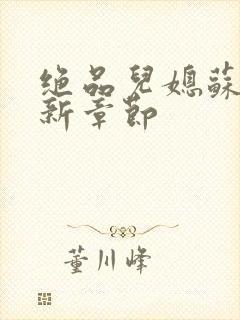 絕品兒媳蘇
新章節
董川峰